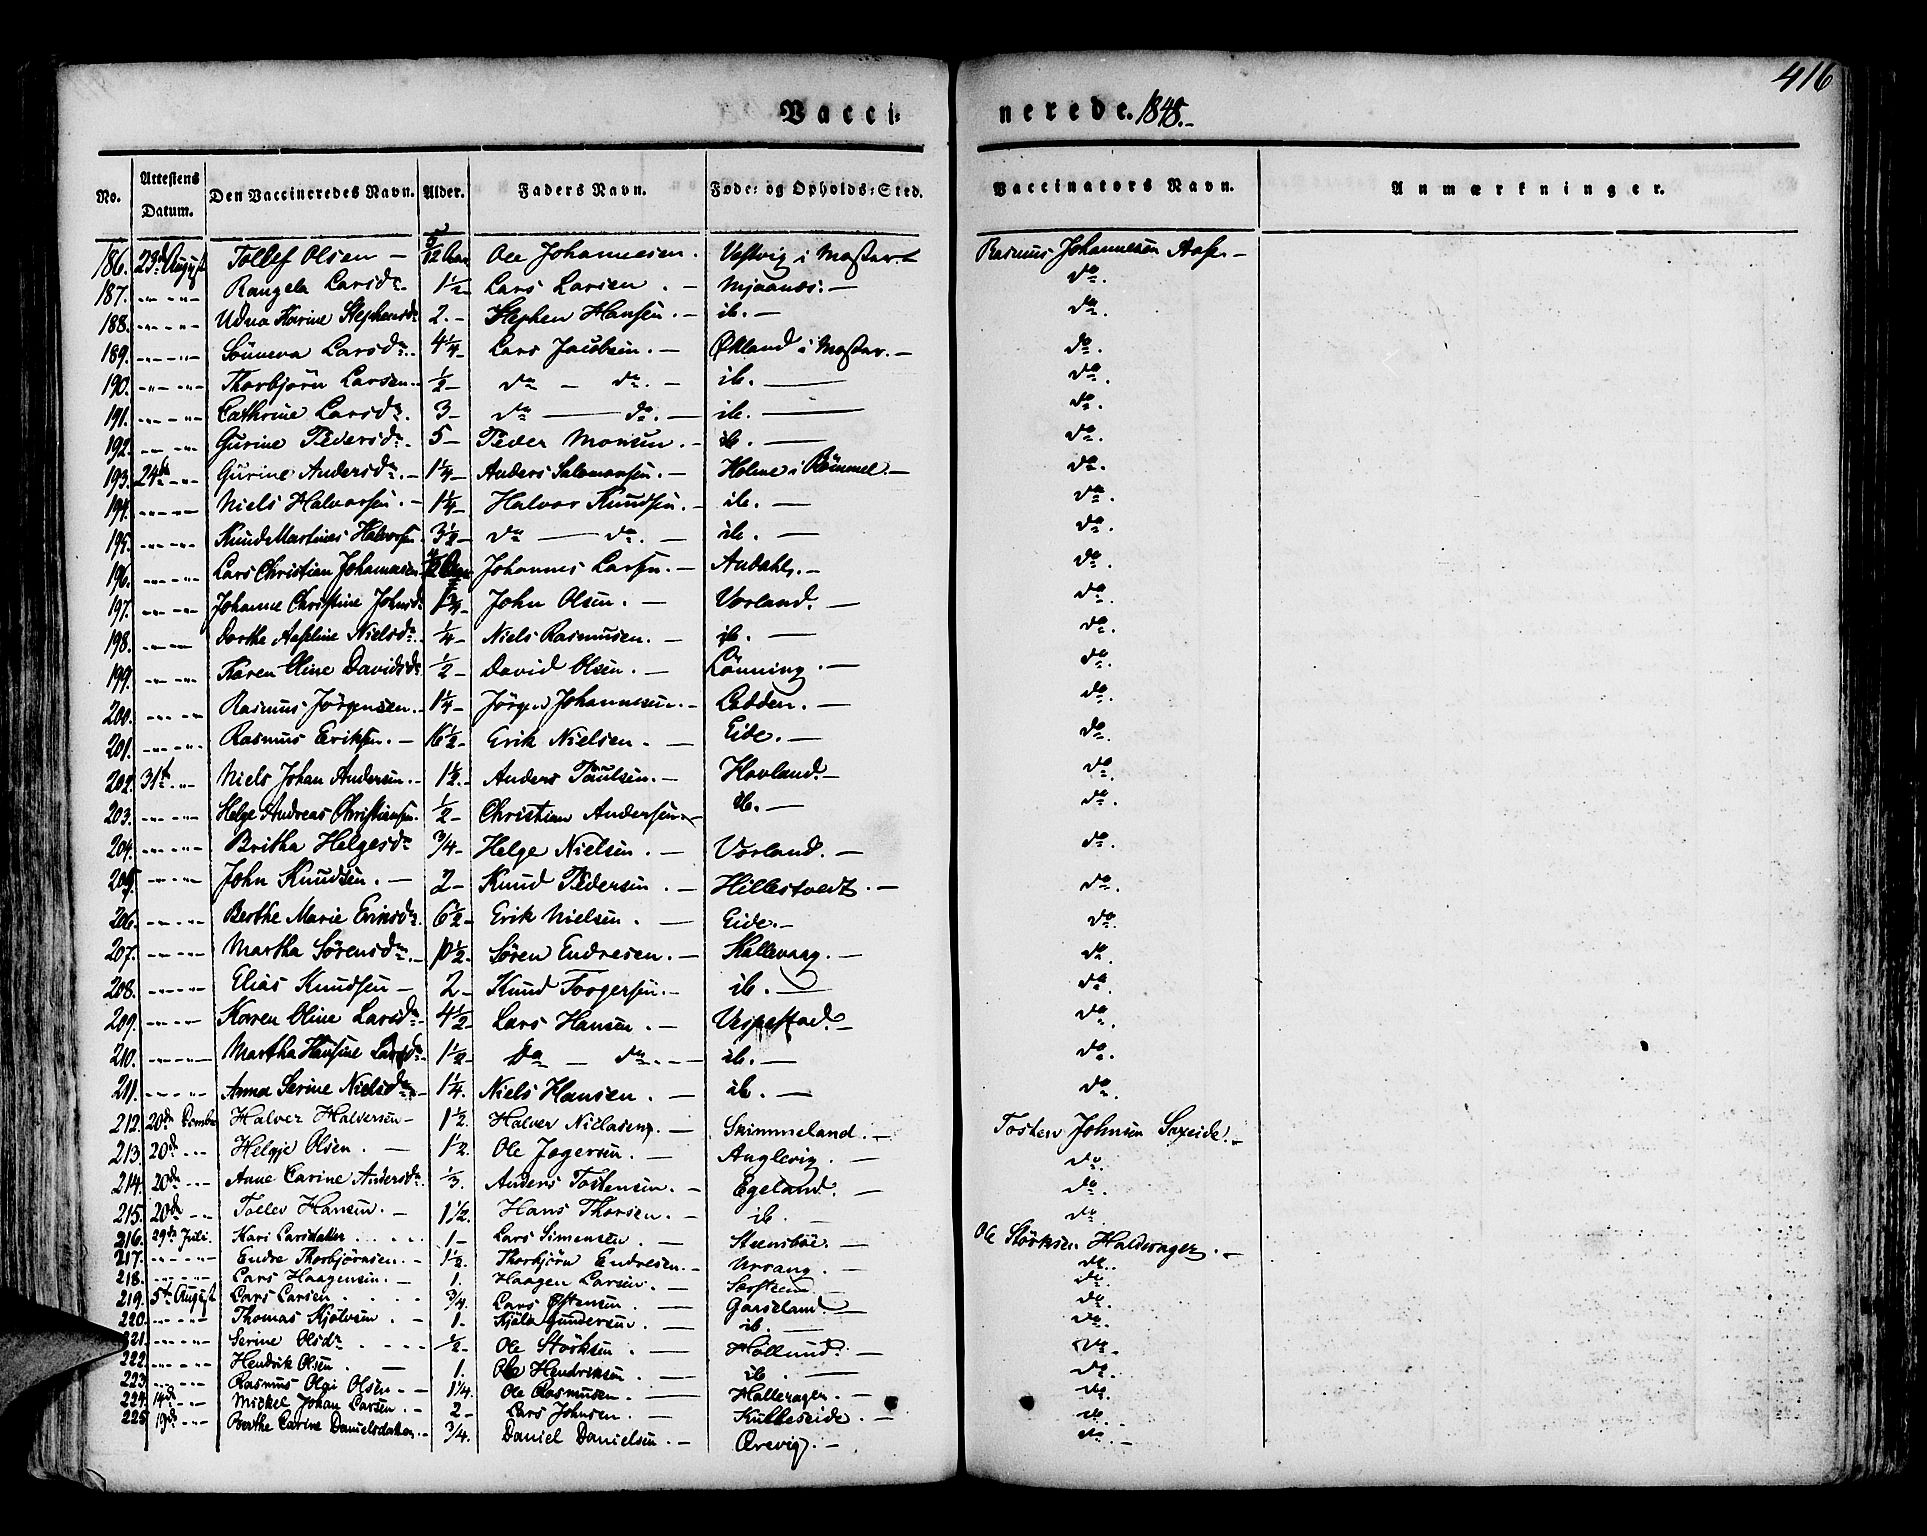 416
Vaccinerede. 1848.
No. | Attestens Datum. | Den Vaccineredes Navn. | Alder. | Faders Navn. | Føde- og Opholds-Sted. | Vaccinators Navn. | Anmærkninger.
186. 23d August Tollef Olsen – 5/12 Aar Ole Johannesen. Vestvig i Moster. Rasmus Johannesen –
187. " " Rangela Larsdr. 1 1/2 – Lars Larsen. – Mjaanes. – do.
188. " " Udna Karine Stephensdr 2. – Stephen Hansen. – ib. – do.
189. " " Sünneva Larsdr. 4 1/4 – Lars Jacobsen. – Økland i Moster. – do.
190. " " Thorbjörn Larsen. 1/2 – do – do. – ib. – do.
191. " " Cathrine Larsdr. 3 – do – do. – ib. – do.
192. " " Gurine Pedersdr. 5 – Peder Monsen. – ib. – do.
193. 24de " Gurine Andersdr. – 1 1/4 – Anders Salomonsen. – Holme i Rømmel. – do.
194. " " Niels Halvorsen. – 1 1/4 – Halvor Knudsen. – ib. – do.
195. " " Knud Martines Halvorsen. 3 1/2 – do – do. – ib. – do.
196. " " Lars Christian Johannesen Johannes Larsen. – Andahl. – do.
197. " " Johanne Christine Johnsdr. 1 3/4 – John Olsen. – Vorland. – do.
198. " " Dorthe Aseline Nielsdr. 1/4 – Niels Rasmusen. – ib. – do.
199. " " Karen Oline Davidsdr 1/2 – David Olsen. – Lönning. – do.
200. " " Rasmus Jörgensen. 1 1/4 – Jörgen Johannesen. – Ladden. – do.
201. " " Rasmus Eriksen. – 16 1/2 – Erik Nielsen. – Eide. – do.
202. 31t " Niels Johan Andersen. – 1 1/2 – Anders Paulsen. – Hovland. – do.
203. " " Helge Andreas Christiansen. 1/2 – Christian Andersen. – ib. – do.
204. " " Britha Helgesdr 3/4 – Helge Nielsen. – Vorland. – do.
205. " " John Knudsen. – 2 – Knud Pedersen. – Hillestvedt. – do.
206. " " Berthe Marie Eriksdr. 6 1/2 – Erik Nielsen. – Eide. – do.
207. " " Martha Sörensdr. – 10 1/2 – Sören Endresen. – Kallevaag. – do.
208. " " Elias Knudsen – 2 – Knud Torgersen. – ib. – do.
209. " " Karen Oline Larsdr. 4 1/2 – Lars Hansen. – Vespestad. – do.
210. " " Martha Hansine Larsdr. 1 1/2 – Do – do. – ib. – do.
211. " " Anna Serine Nielsdr. – 1 1/4. Niels Hansen. – ib. – do.
212. 20de Halver Halversen – 1 1/2. Halver Niclasen. – Skimmeland. – Tosten Johnsen Saxeide. –
213. 20de " Helgje Olsen. – 1 1/2. Ole Jogersen. – Anglevig. – do.
214. 20de " Anne Carine Andersdr. 1/3. Anders Tostensen. – Egeland. – do.
215. 20de " Tollev Hansen. – 1 1/2. Hans Thorsen. – ib. – do
216. 29de Juli. Kari Larsdatter 1 – Lars Simensen. – Steensböe. – Ole Störksen Haldorager. –
217. " " Endre Thorbjörnsen. – 1 1/2. Thorbjörn Endresen. – Urrang. – do.
218. " " Lars Haagensen. – 1. Haagen Larsen. – do.
219. 5te August Lars Larsen 3/4. Lars Østensen. – Gaaseland. – do.
220. " " Thomas Kjölvsen. – 1 – Kjöln Gundersen. – ib. – do.
221. " " Serine Olsdr 1/2 – Ole Störksen. – Hollund. – do.
222. " " Hendrik Olsen. – 1. Ole Hendriksen. – ib. – do.
223. " " Rasmus Olai Olsen. – 1 1/4. Ole Rasmusen. – Hallerager. – do.
224. 14de " Mickel Johan Larsen. – 2 – Lars Johnsen. – Kulleseide. – do.
225. 19de " Berthe Carine Danielsdatter. – 3/4. Daniel Danielsen. – Ørevig. – do. –